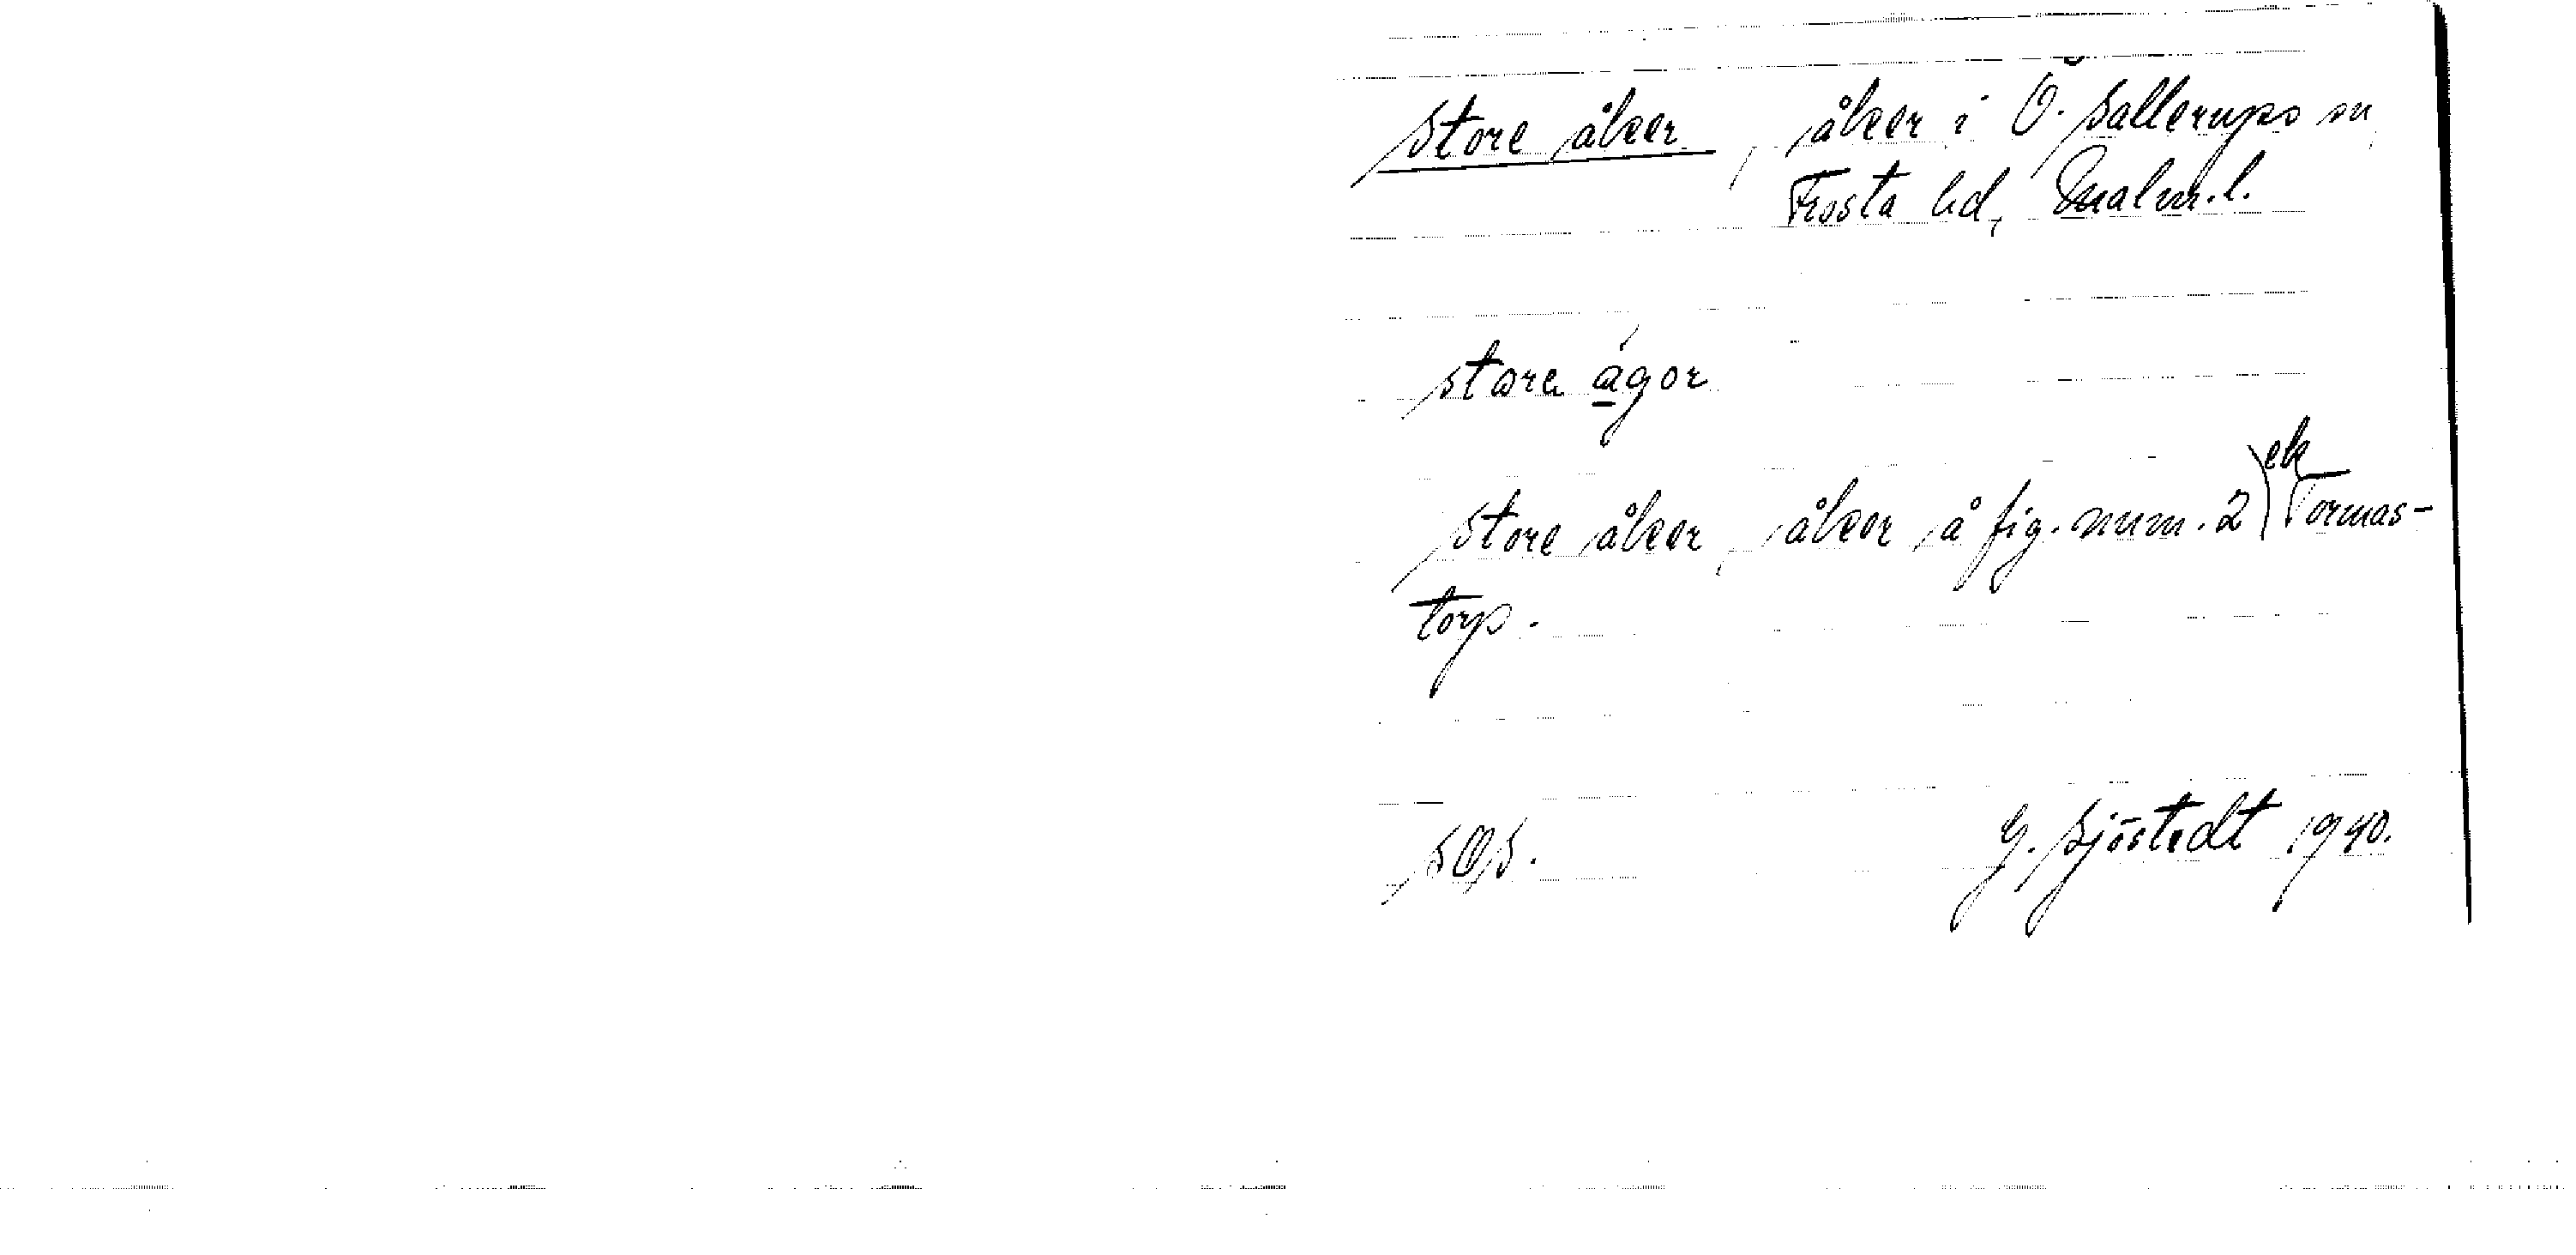 Store åker, åker i Ö. Sallerups sn,
Frosta hd, Malm.l.
store ágor
Store åker, åker å fig. num. 2) ek Tormas-
torp.
SOS. G. Sjöstedt 1940.